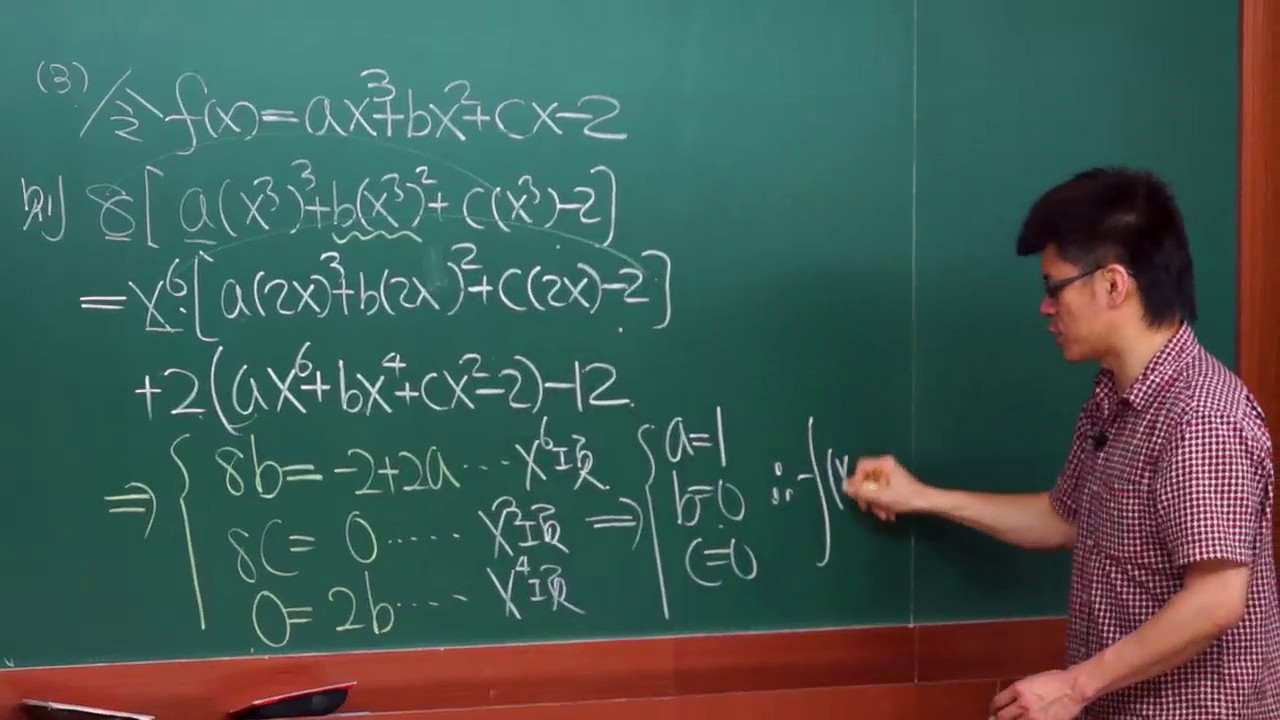 (3) 令 f(x)=ax³+bx²+cx-2
則 8[a(x³)³+b(x³)²+c(x³)-2]
=x⁶[a(2x)³+b(2x)²+c(2x)-2]
+2(ax⁶+bx⁴+cx²-2)-12
⇒ { 8b=-2+2a … x⁶項
8c=0 ..... x³項
0=2b .... x⁴項
⇒ { a=1
b=0
c=0
∴ f(x